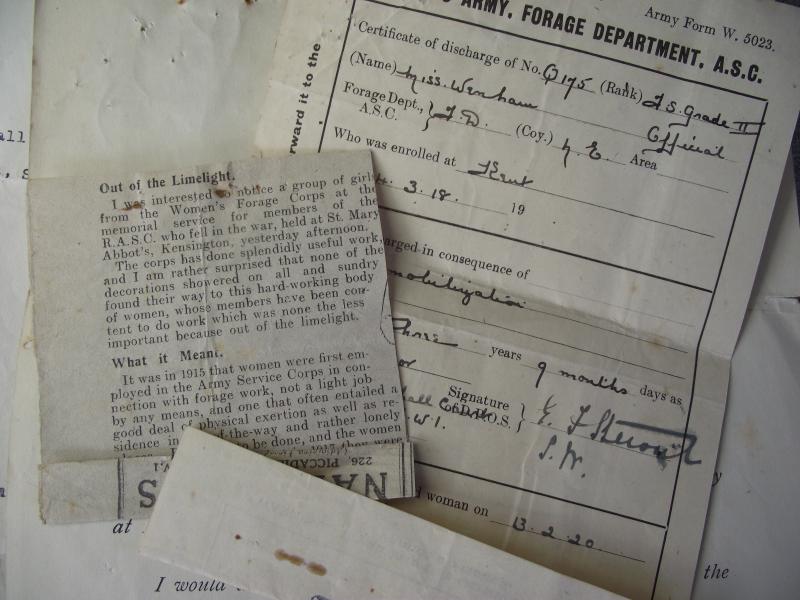 Army Form W. 5023.
ARMY, FORAGE DEPARTMENT, A.S.C.
Certificate of discharge of No. Q175 (Rank) F S. Grade II
(Name) Miss. Wenham Official
Forage Dept., A.S.C. } F.D. (Coy.) Area
Who was enrolled at Kent
3. 18. 19
in consequence of
years 9 months days as
or
Signature
W.1.
S.W.
woman on 13.2.20
rward it to the
Out of the Limelight.
I was interested to notice a group of girls
from the Women's Forage Corps at the
memorial service for members of the
R.A.S.C. who fell in the war, held at St. Mary
Abbot's, Kensington, yesterday afternoon.
The corps has done splendidly useful work,
and I am rather surprised that none of the
decorations showered on all and sundry
found their way to this hard-working body
of women, whose members have been con-
tent to do work which was none the less
important because out of the limelight.
What it Meant.
It was in 1915 that women were first em-
ployed in the Army Service Corps in con-
nection with forage work, not a light job
by any means, and one that often entailed a
good deal of physical exertion as well as re-
sidence in of-the-way and rather lonely
to be done, and the women
226,
PICCAD
NA
S
at
I would
the